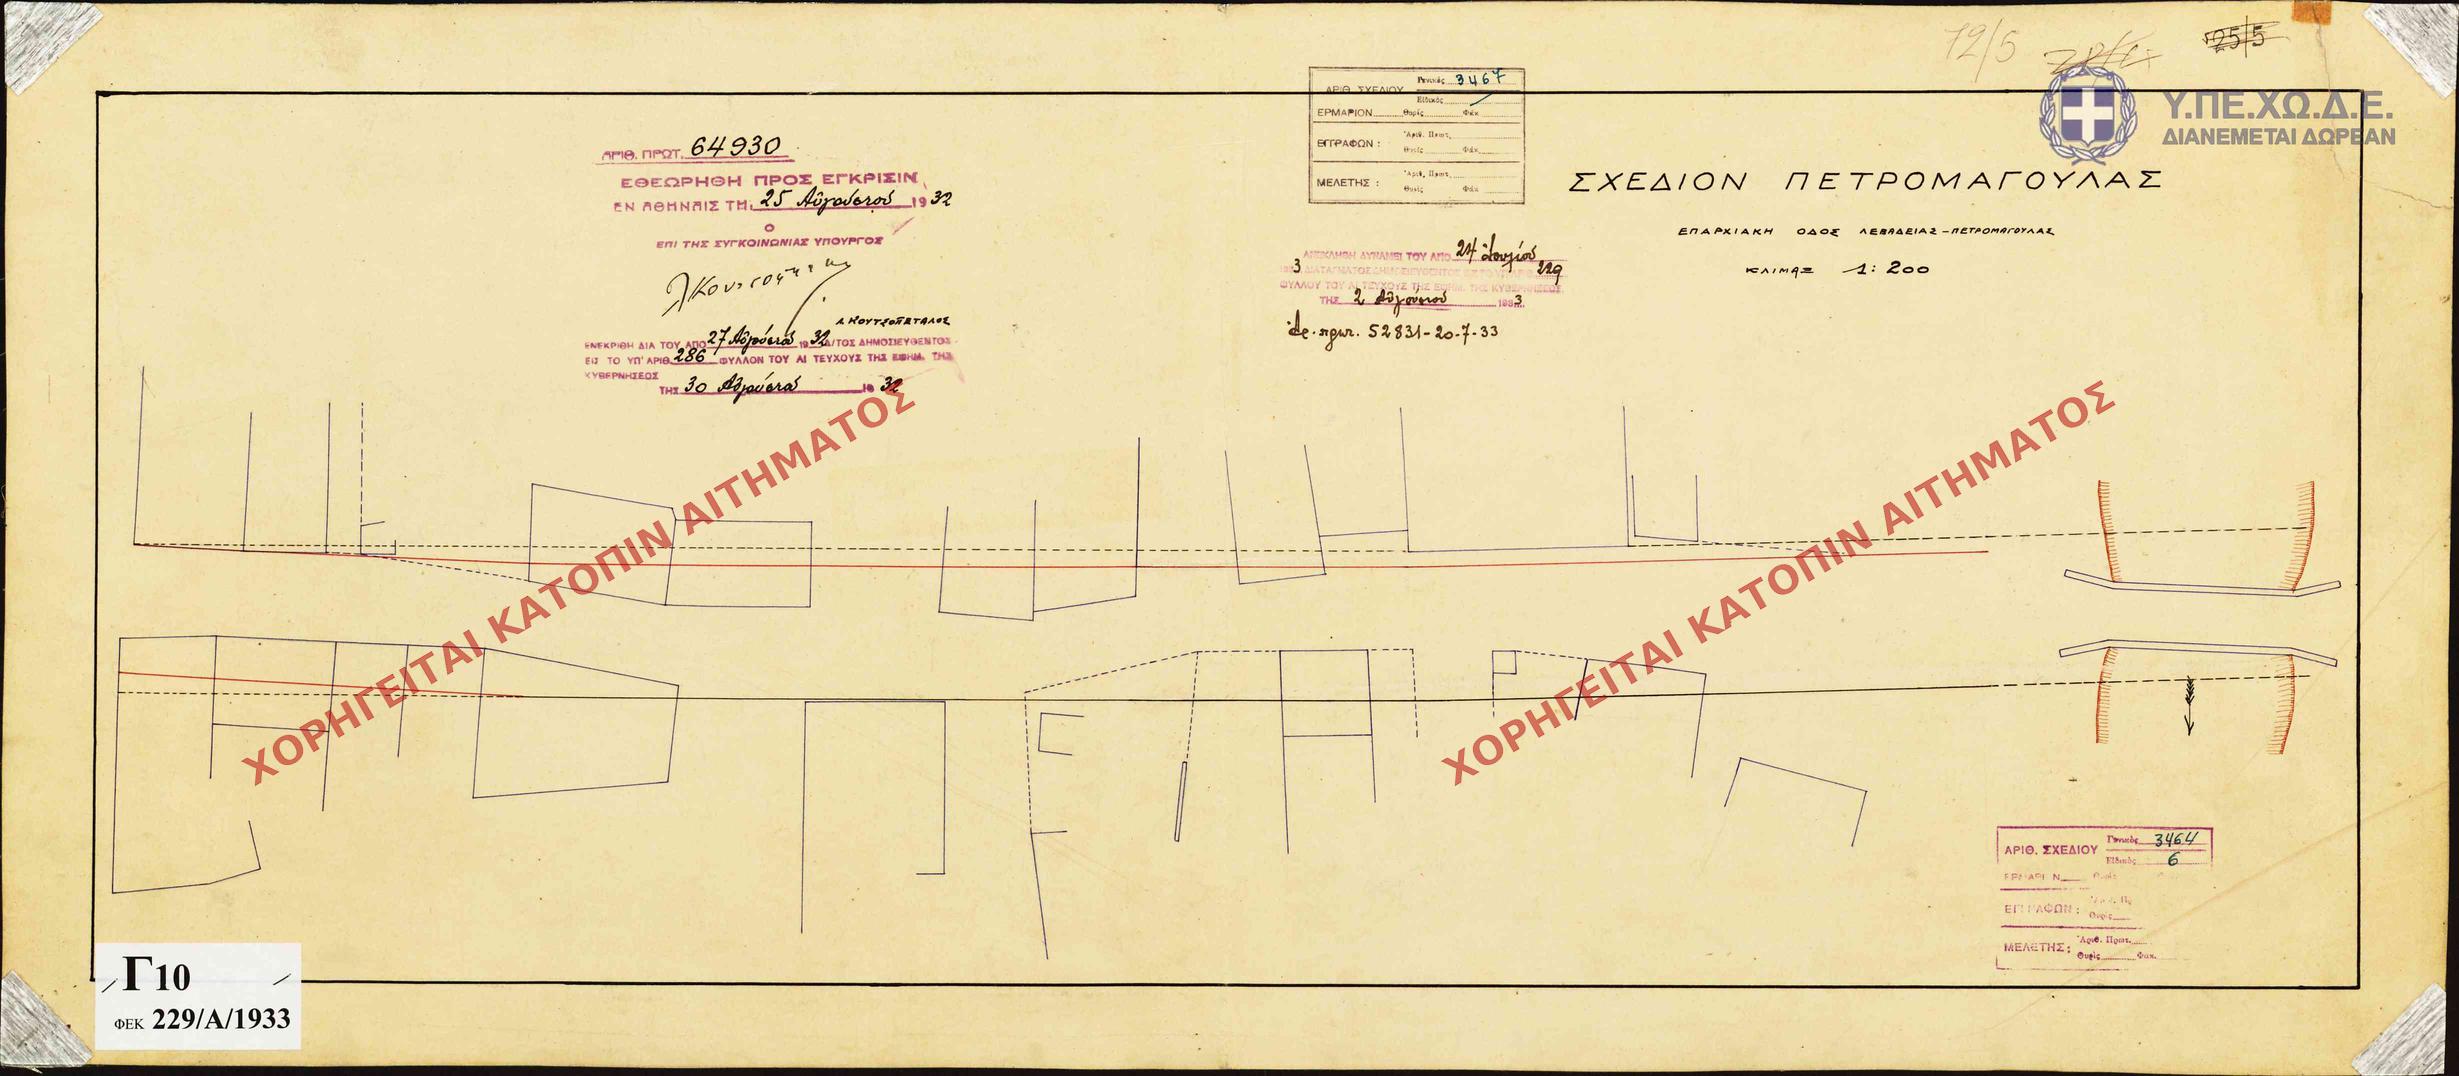 12/5
25/5
Υ.ΠΕ.ΧΩ.Δ.Ε.
ΔΙΑΝΕΜΕΤΑΙ ΔΩΡΕΑΝ
ΑΡΙΘ. ΣΧΕΔΙΟΥ Γενικός 3467
Ειδικός
ΕΡΜΑΡΙΟΝ Θυρίς Φάκ.
ΕΓΓΡΑΦΩΝ : Ἀριθ. Πρωτ.
Θυρίς Φάκ.
ΜΕΛΕΤΗΣ : Ἀριθ. Πρωτ.
Θυρίς Φάκ.
ΑΡΙΘ. ΠΡΩΤ. 64930
ΕΘΕΩΡΗΘΗ ΠΡΟΣ ΕΓΚΡΙΣΙΝ
ΕΝ ΑΘΗΝΑΙΣ ΤΗι 25 Αὐγούστου 1932
Ο
ΕΠΙ ΤΗΣ ΣΥΓΚΟΙΝΩΝΙΑΣ ΥΠΟΥΡΓΟΣ
Λ. ΚΟΥΤΣΟΠΕΤΑΛΟΣ
ΕΝΕΚΡΙΘΗ ΔΙΑ ΤΟΥ ΑΠΟ 27 Αὐγούστου 1932 Δ/ΤΟΣ ΔΗΜΟΣΙΕΥΘΕΝΤΟΣ
ΕΙΣ ΤΟ ΥΠ' ΑΡΙΘ. 286 ΦΥΛΛΟΝ ΤΟΥ Α! ΤΕΥΧΟΥΣ ΤΗΣ ΕΦΗΜ. ΤΗΣ
ΚΥΒΕΡΝΗΣΕΩΣ
ΤΗΣ 30 Αὐγούστου 1932
ΣΧΕΔΙΟΝ ΠΕΤΡΟΜΑΓΟΥΛΑΣ
ΕΠΑΡΧΙΑΚΗ ΟΔΟΣ ΛΕΒΑΔΕΙΑΣ-ΠΕΤΡΟΜΑΓΟΥΛΑΣ
ΚΛΙΜΑΞ 1:200
ΑΝΕΚΛΗΘΗ ΔΥΝΑΜΕΙ ΤΟΥ ΑΠΟ 24 Ἰουλίου
1933 ΔΙΑΤΑΓΜΑΤΟΣ ΔΗΜΟΣΙΕΥΘΕΝΤΟΣ ΕΙΣ ΤΟ ΥΠ' ΑΡΙΘ. 229
ΦΥΛΛΟΥ ΤΟΥ Α! ΤΕΥΧΟΥΣ ΤΗΣ ΕΦΗΜ. ΤΗΣ ΚΥΒΕΡΝΗΣΕΩΣ
ΤΗΣ 2 Αὐγούστου 1933
ἀρ. πρωτ. 52831-20-7-33
ΧΟΡΗΓΕΙΤΑΙ ΚΑΤΟΠΙΝ ΑΙΤΗΜΑΤΟΣ
ΧΟΡΗΓΕΙΤΑΙ ΚΑΤΟΠΙΝ ΑΙΤΗΜΑΤΟΣ
ΑΡΙΘ. ΣΧΕΔΙΟΥ Γενικός 3464
Ειδικός 6
ΕΓΓΡΑΦΩΝ :
Θυρίς
ΜΕΛΕΤΗΣ : Ἀριθ. Πρωτ.
Θυρίς Φακ.
Γ10
ΦΕΚ 229/Α/1933